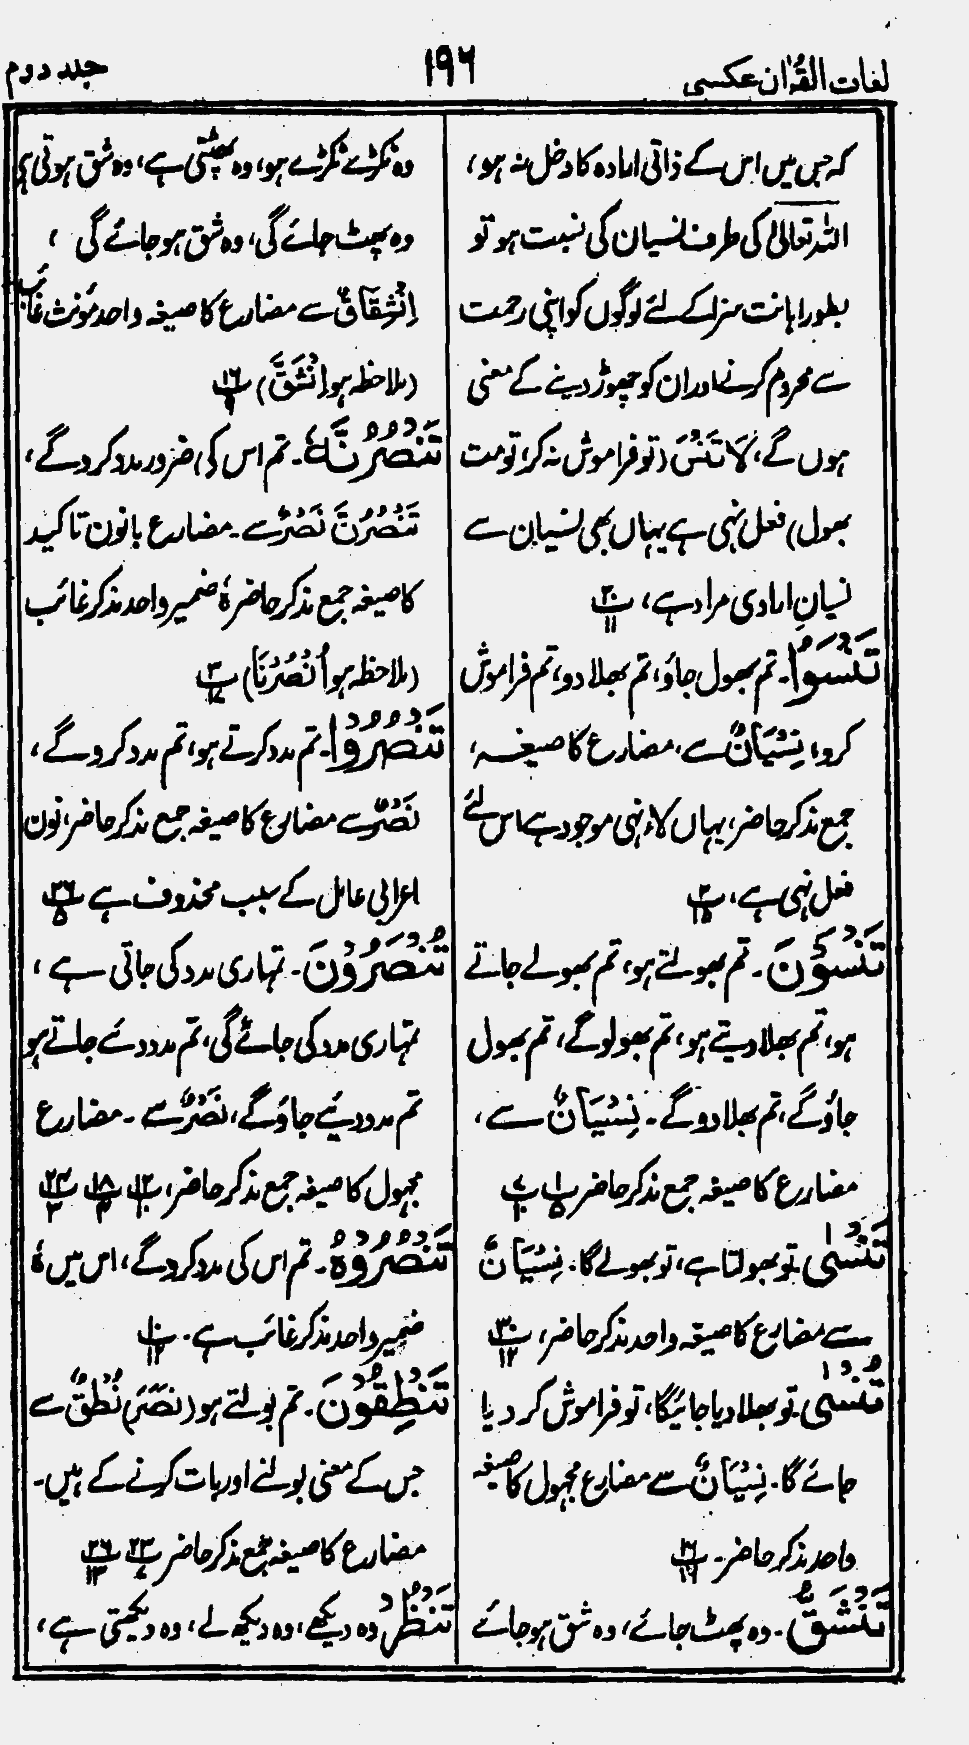 لغات القرآن عکسی
۱۹۶
جلد دوم
کہ جس میں اس کے ذاتی ارادہ کا دخل نہ ہو،
اللہ تعالیٰ کی طرف نسیان کی نسبت ہو تو
بطور اہانت سزا کے لئے لوگوں کو اپنی رحمت
سے محروم کرنے اور ان کو چھوڑ دینے کے معنی
ہوں گے، لَا تَنْسَ (تو فراموش نہ کر، تو مت
بھول) فعل نہی ہے یہاں بھی نسیان سے
نسیانِ ارادی مراد ہے، پ۲۰ ۱۱
تَنْسَوُا۔ تم بھول جاؤ، تم بھلا دو، تم فراموش
کرو، نِسْیَانٌ سے، مضارع کا صیغہ،
جمع مذکر حاضر، یہاں لاء نہی موجود ہے اس لئے
فعل نہی ہے، پ۲ ۱۵
تَنْسَوْنَ۔ تم بھولتے ہو، تم بھولے جاتے
ہو، تم بھلا دیتے ہو، تم بھولو گے، تم بھول
جاؤ گے، تم بھلا دو گے۔ نِسْیَانٌ سے،
مضارع کا صیغہ جمع مذکر حاضر پ۱ ۵ پ۷ ۱۰
تَنْسٰی۔ تو بھولتا ہے، تو بھولے گا۔ نِسْیَانٌ
سے مضارع کا صیغہ واحد مذکر حاضر، پ۳۰ ۱۲
تُنْسٰی۔ تو بھلا دیا جائیگا، تو فراموش کر دیا
جائے گا۔ نِسْیَانٌ سے مضارع مجہول کا صیغہ
واحد مذکر حاضر۔ پ۱۶ ۱۶
تَنْشَقُّ۔ وہ پھٹ جائے، وہ شق ہو جائے
وہ ٹکڑے ٹکڑے ہو، وہ پھٹتی ہے، وہ شق ہوتی ہے
وہ پھٹ جائے گی، وہ شق ہو جائے گی،
اِنْشِقَاقٌ سے مضارع کا صیغہ واحد مؤنث غائب
(ملاحظہ ہو اِنْشَقَّ) پ۱۶ ۹
تَنْصُرُنَّہٗ۔ تم اس کی ضرور مدد کرو گے،
تَنْصُرُنَّ نَصْرٌ سے۔ مضارع بانون تاکید
کا صیغہ جمع مذکر حاضر ہٗ ضمیر واحد مذکر غائب
(ملاحظہ ہو اُنْصُرْنَا) پ۳ ۱۷
تَنْصُرُوا۔ تم مدد کرتے ہو، تم مدد کرو گے،
نَصْرٌ سے مضارع کا صیغہ جمع مذکر حاضر، نون
اعرابی عامل کے سبب محذوف ہے پ۲۶ ۵
تُنْصَرُوْنَ۔ تمہاری مدد کی جاتی ہے،
تمہاری مدد کی جائے گی، تم مدد دئے جاتے ہو
تم مدد دیے جاؤ گے، نَصْرٌ سے۔ مضارع
مجہول کا صیغہ جمع مذکر حاضر، پ۱۲ ۱۰ پ۱۸ ۴ پ۲۴ ۳
تَنْصُرُوْہُ۔ تم اس کی مدد کرو گے، اس میں ہٗ
ضمیر واحد مذکر غائب ہے۔ پ۱۰ ۱۲
تَنْطِقُوْنَ۔ تم بولتے ہو (نَصَرَ) نُطْقٌ سے
جس کے معنی بولنے اور بات کرنے کے ہیں۔
مضارع کا صیغہ جمع مذکر حاضر پ۲۳ ۷ پ۲۶ ۱۳
تَنْظُرْ وہ دیکھے، وہ دیکھ لے، وہ دیکھتی ہے،